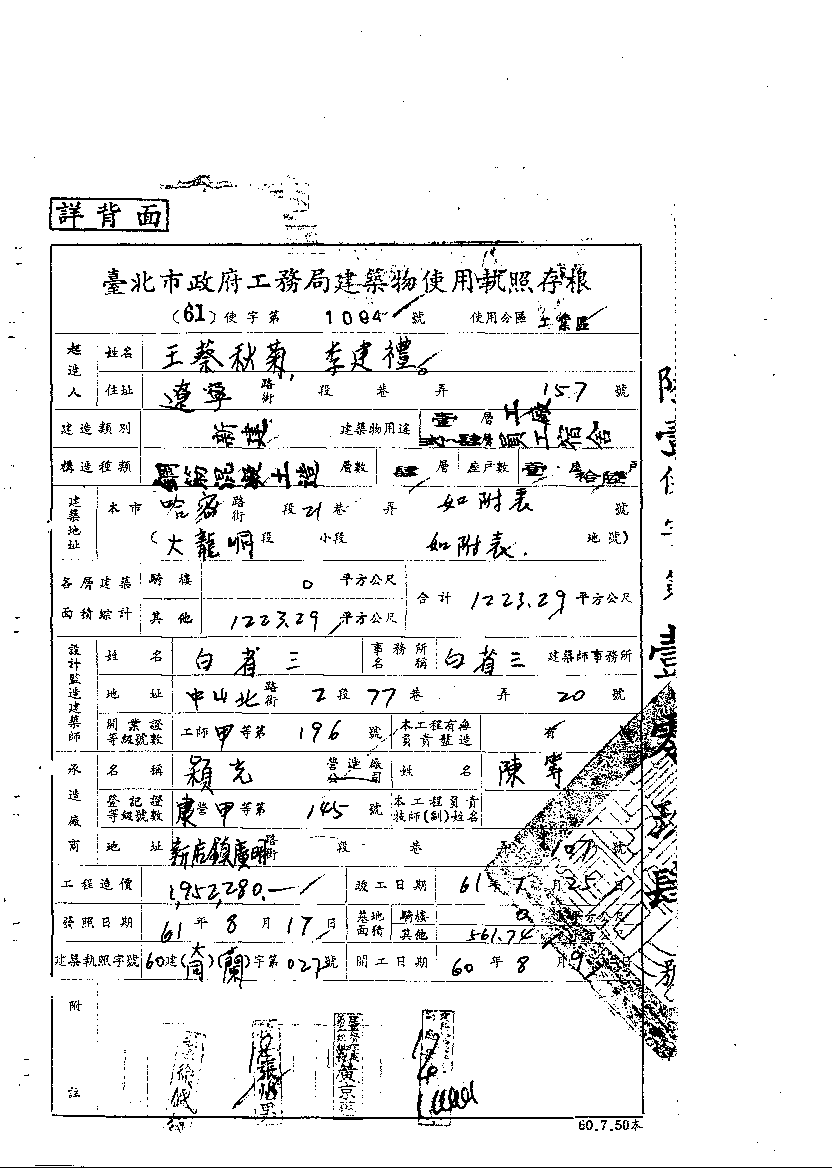 詳背面
臺北市政府工務局建築物使用執照存根
(61)使字第1094號 使用分區 工業區
起造人 姓名 王蔡秋菊，李建禮。
住址 遼寧 路街 段 巷 弄 157 號
建造類別 新建 建築物用途 壹層工廠 員工宿舍
構造種類 鋼筋混凝土造 層數 肆 層 座戶數 壹座拾陸戶
建築地址 本市 哈密 路街 段 21 巷 弄 如附表 號
(大龍峒 段 小段 如附表. 地號)
各層建築面積綜計 騎樓 0 平方公尺 合計 1223.29 平方公尺
其他 1223.29 平方公尺
設計監造建築師 姓名 白省三 事務所名稱 白省三 建築師事務所
地址 中山北 路街 2 段 77 巷 弄 20 號
開業證等級號數 工師 甲 等第 196 號 本工程有無負責監造 有
承造廠商 名稱 穎克 營造廠公司 姓名 陳
登記證等級號數 營 甲 等第 145 號 本工程負責技師(副)姓名
地址 新店鎮廣明 路街 段 巷 弄 107 號
工程造價 1,952,280.— 竣工日期 61 年 7 月 25 日
發照日期 61 年 8 月 17 日 基地面積 騎樓 0 平方公尺
其他 561.74 平方公尺
建築執照字號 60建(大同)(蘭)字第027號 開工日期 60 年 8 月 9 日
附註
黃京
60.7.50本